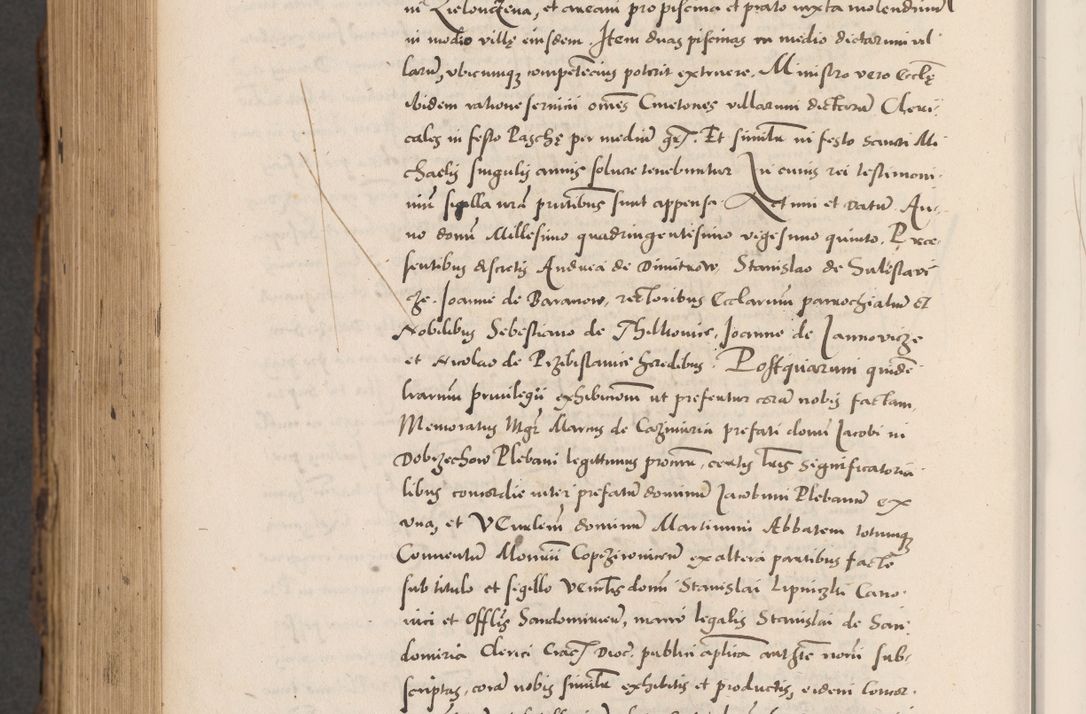 in Zielonczena, et aream pro piscina et prato iuxta molendinum
in medio villę eiusdem. Item duas piscinas in medio dictarum vil
larum, vbicumq; competencius poterit extruere. Ministro vero Eccłę
ibidem ratione seruicii om̄es Cmetones villarum dictarum Cleri-
cales in festo Paschę per medium gr̄. Et simile in festo Sancti Mi
chaelis singulis annis soluere tenebuntur In cuius rei testimoni
um sigilla n̄ra pn̄tibus sunt appensa Actum et Datum. An-
no domini Millesimo quadringentesimo vigesimo quinto. Prae-
sentibus discretis Andrea de Dimitrow, Stanislao de Sulislawi
cze. Joanne de Baranow, rectoribus Eccłarum parrochialium et
Nobilibus Sebestiano de , Joanne de Janowicze
et Nicolao de Przibislawice heredibus. Postquarum quidē
l̄rarum priuilegii exhibicionem ut prefertur corā nobis factam,
Memoratus Mgr̄ Marcus de Cazimiria prefati domini Jacobi in
Dobrzechow Plebani legittimus procur̄, certis l̄ris significatoria
libus concordie inter prefatum dominum Jacobum Plebanum ex
vna, et Ven̄lem dominum Martinum Abbatem totumq;
Conuentum Mon̄rii Coprziwnicen̄ ex altera partibus facte
sub titulo et sigillo Ven̄lis domini Stanislai Lipniczki Cano-
nici et Offłis Sandomirien̄, manu legalis Stanislai de San-
domiria Clerici Crac̄ Dioc. publici ap̄lica auct̄te notarii sub-
scriptas, corā nobis simile exhibitis et productis, eidem concor-